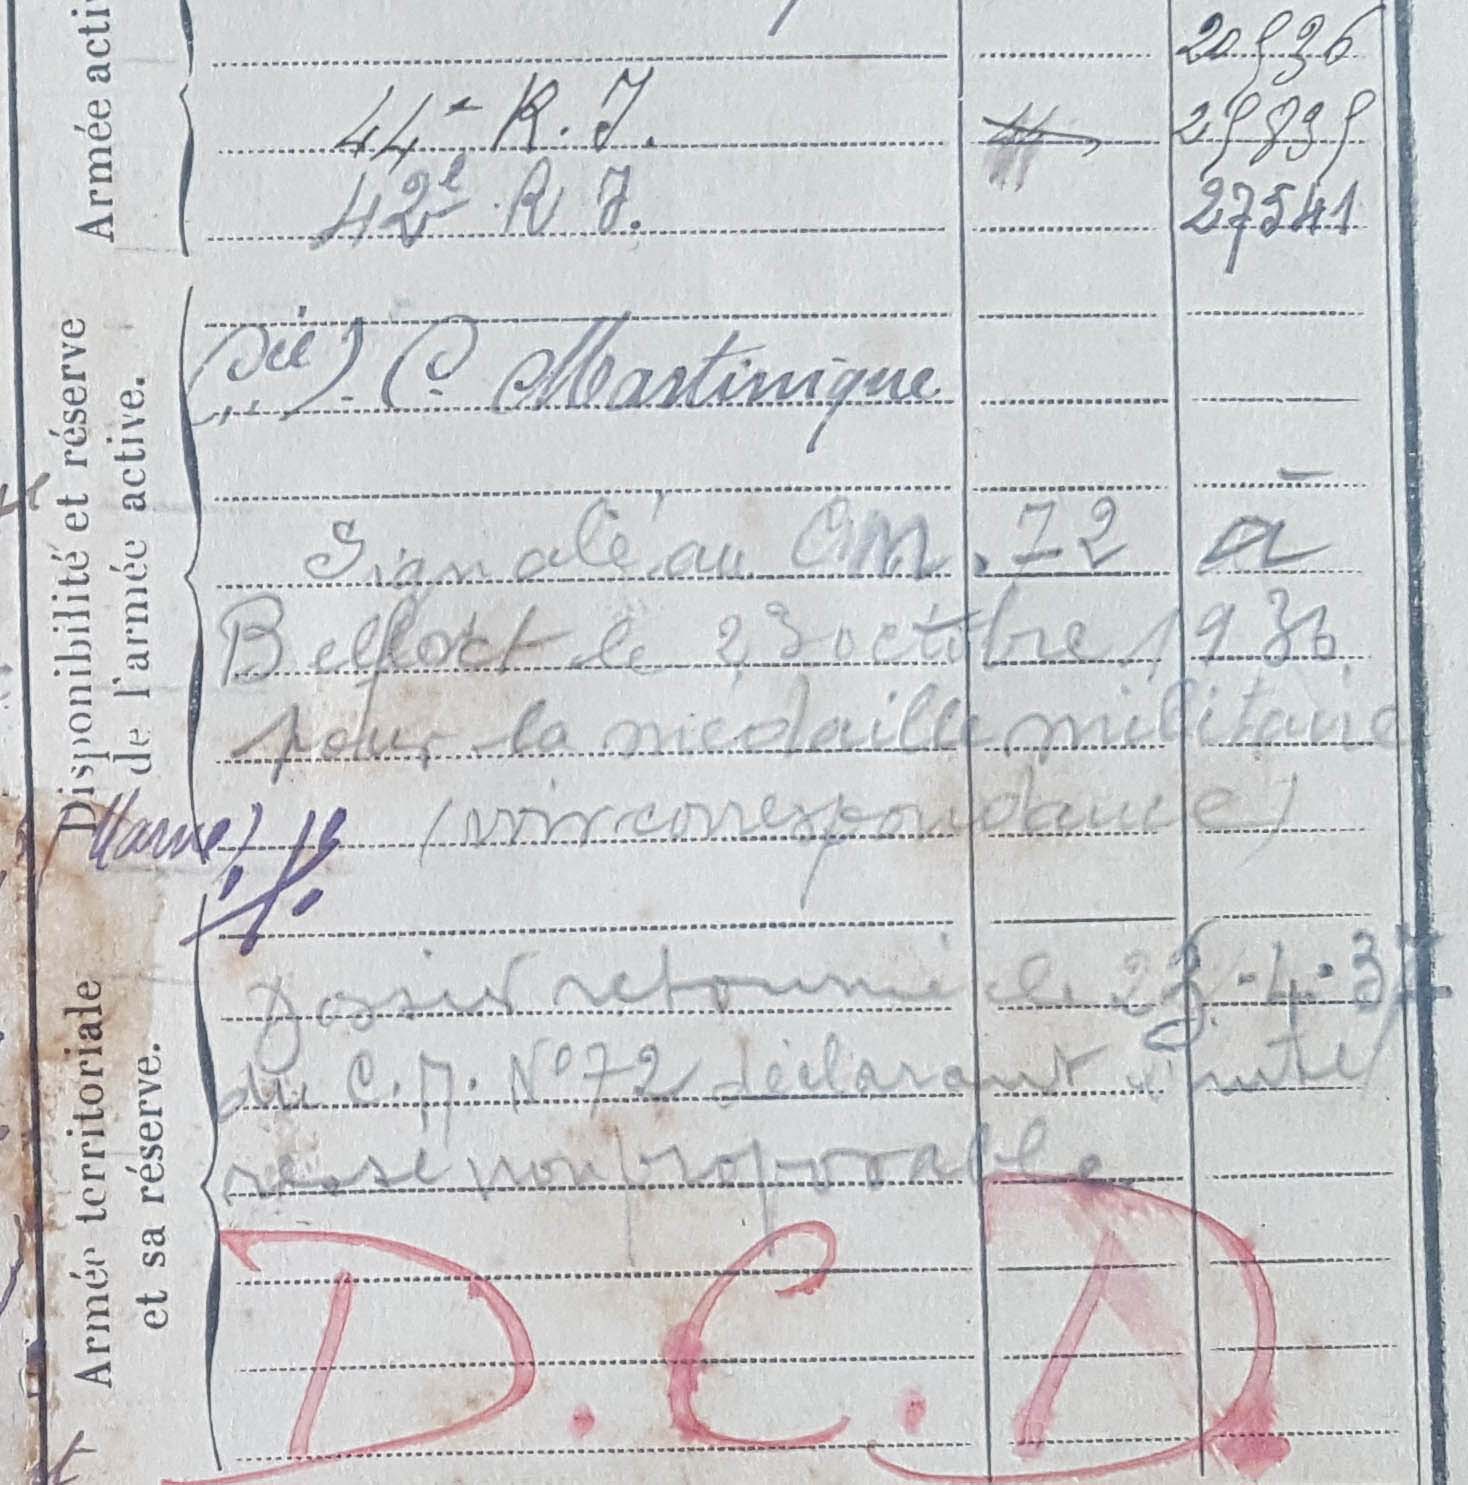 Armée acti
20536
44e R. I. 25835
42e R I. 27541
Disponibilité et réserve
de l'armée active.
Martinique
Signalé au CM. 72 à
Belfort le 23 octobre 1936
pour la médaille militaire
(voir correspondance)
Marne)
Armée territoriale
et sa réserve.
Dossier retourné le 23-4-37
du C.M. No 72 déclarant
non proposable
D.C.D